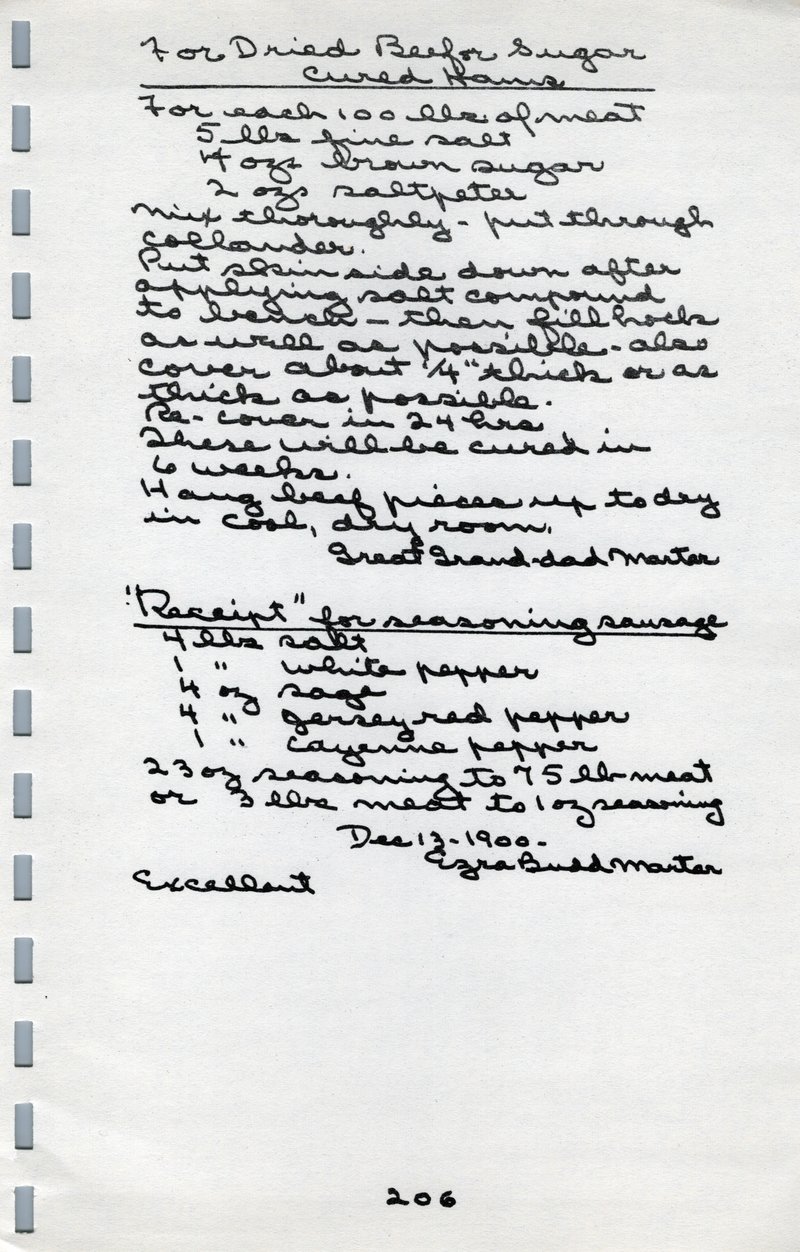 For Dried Beef or Sugar
Cured Hams
For each 100 lbs. of meat
5 lbs fine salt
4 ozs brown sugar
2 ozs saltpeter
Mix thoroughly - put through
collander.
Put skin side down after
applying salt compound
to bench - then fill hocks
as well as possible - also
cover about 1/4" thick or as
thick as possible.
Re-cover in 24 hrs
These will be cured in
6 weeks.
Hang beef pieces up to dry
in cool, dry room.
Great Grand-dad Marter
"Receipt" for seasoning sausage
4 lbs salt
1 " white pepper
4 oz sage
4 " jersey red pepper
1 " cayenne pepper
23 oz seasoning to 75 lb meat
or 3 lbs meat to 1 oz seasoning
Dec 13-1900-
Ezra Budd Marter
Excellant
206